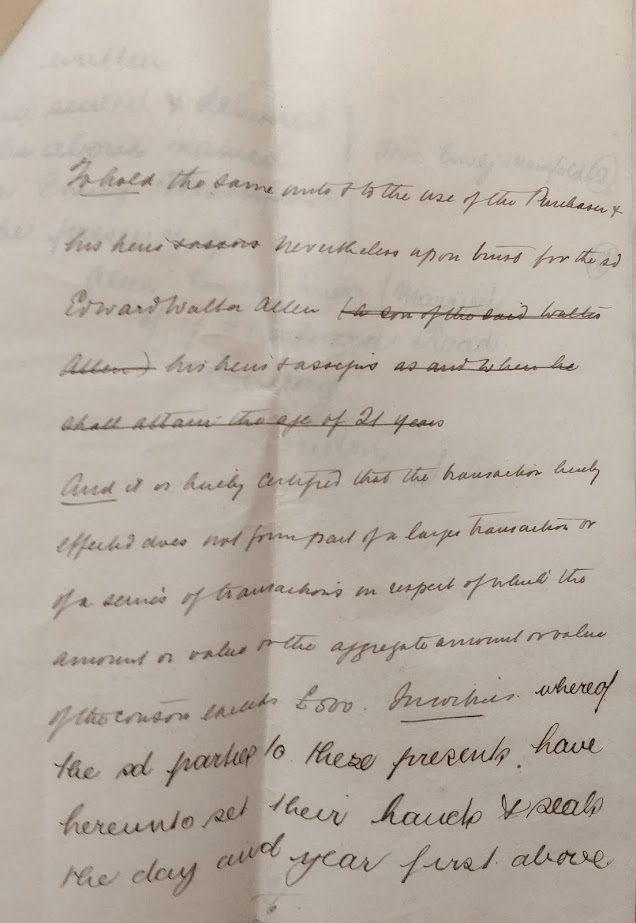 To hold the same unto & to the use of the Purchaser &
his heirs & assigns nevertheless upon trust for the sd
Edward Walter Allen (a son of the said Walter
Allen) his heirs & assigns as and when he
shall attain the age of 21 years
And it is hereby certified that the transaction hereby
effected does not form part of a larger transaction or
of a series of transactions in respect of which the
amount or value or the aggregate amount or value
of the conson exceeds £500. In witness whereof
the sd parties to these presents have
hereunto set their hands & seals
the day and year first above
6